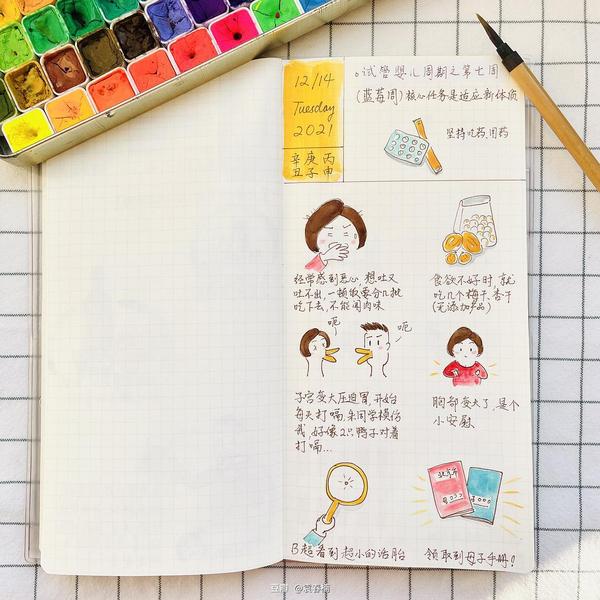 12/14
Tuesday
2021
辛庚丙
丑子申
试管婴儿周期之第七周
(蓝莓周)核心任务是适应新体质
坚持吃药、用药
经常感到恶心,想吐又
吐不出,一顿饭要分几批
吃下去,不能闻肉味
食欲不好时,就
吃几个梅干、杏干
(无添加产品)
呃
呃
子宫变大压迫胃,开始
每天打嗝,朱同学模仿
我,好像2只鸭子对着
打嗝...
胸部变大了,是个
小安慰
B超看到超小的活胎
领取到母子手册!
豆瓣 @袁春楠